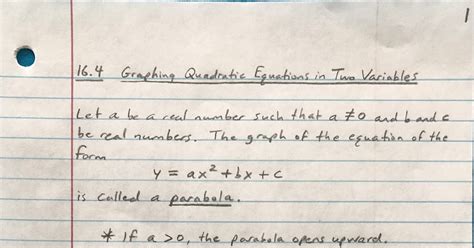 1
16.4 Graphing Quadratic Equations in Two Variables
Let a be a real number such that a ≠ 0 and b and c
be real numbers. The graph of the equation of the
form
y = ax² + bx + c
is called a parabola.
* If a > 0, the parabola opens upward.